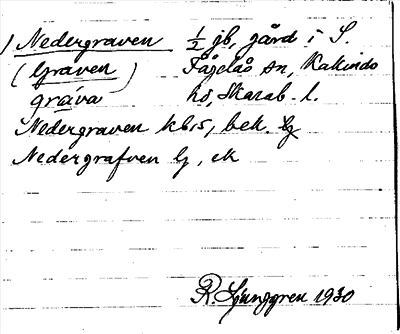 1) Nedergraven 1/2 gb, gård i S.
(Graven) Fågelås sn, Kakinds
gráva hd, Skarab. l.
Nedergraven kb 15, bek.
Nedergrafven lj, ek
R. Ljunggren 1930